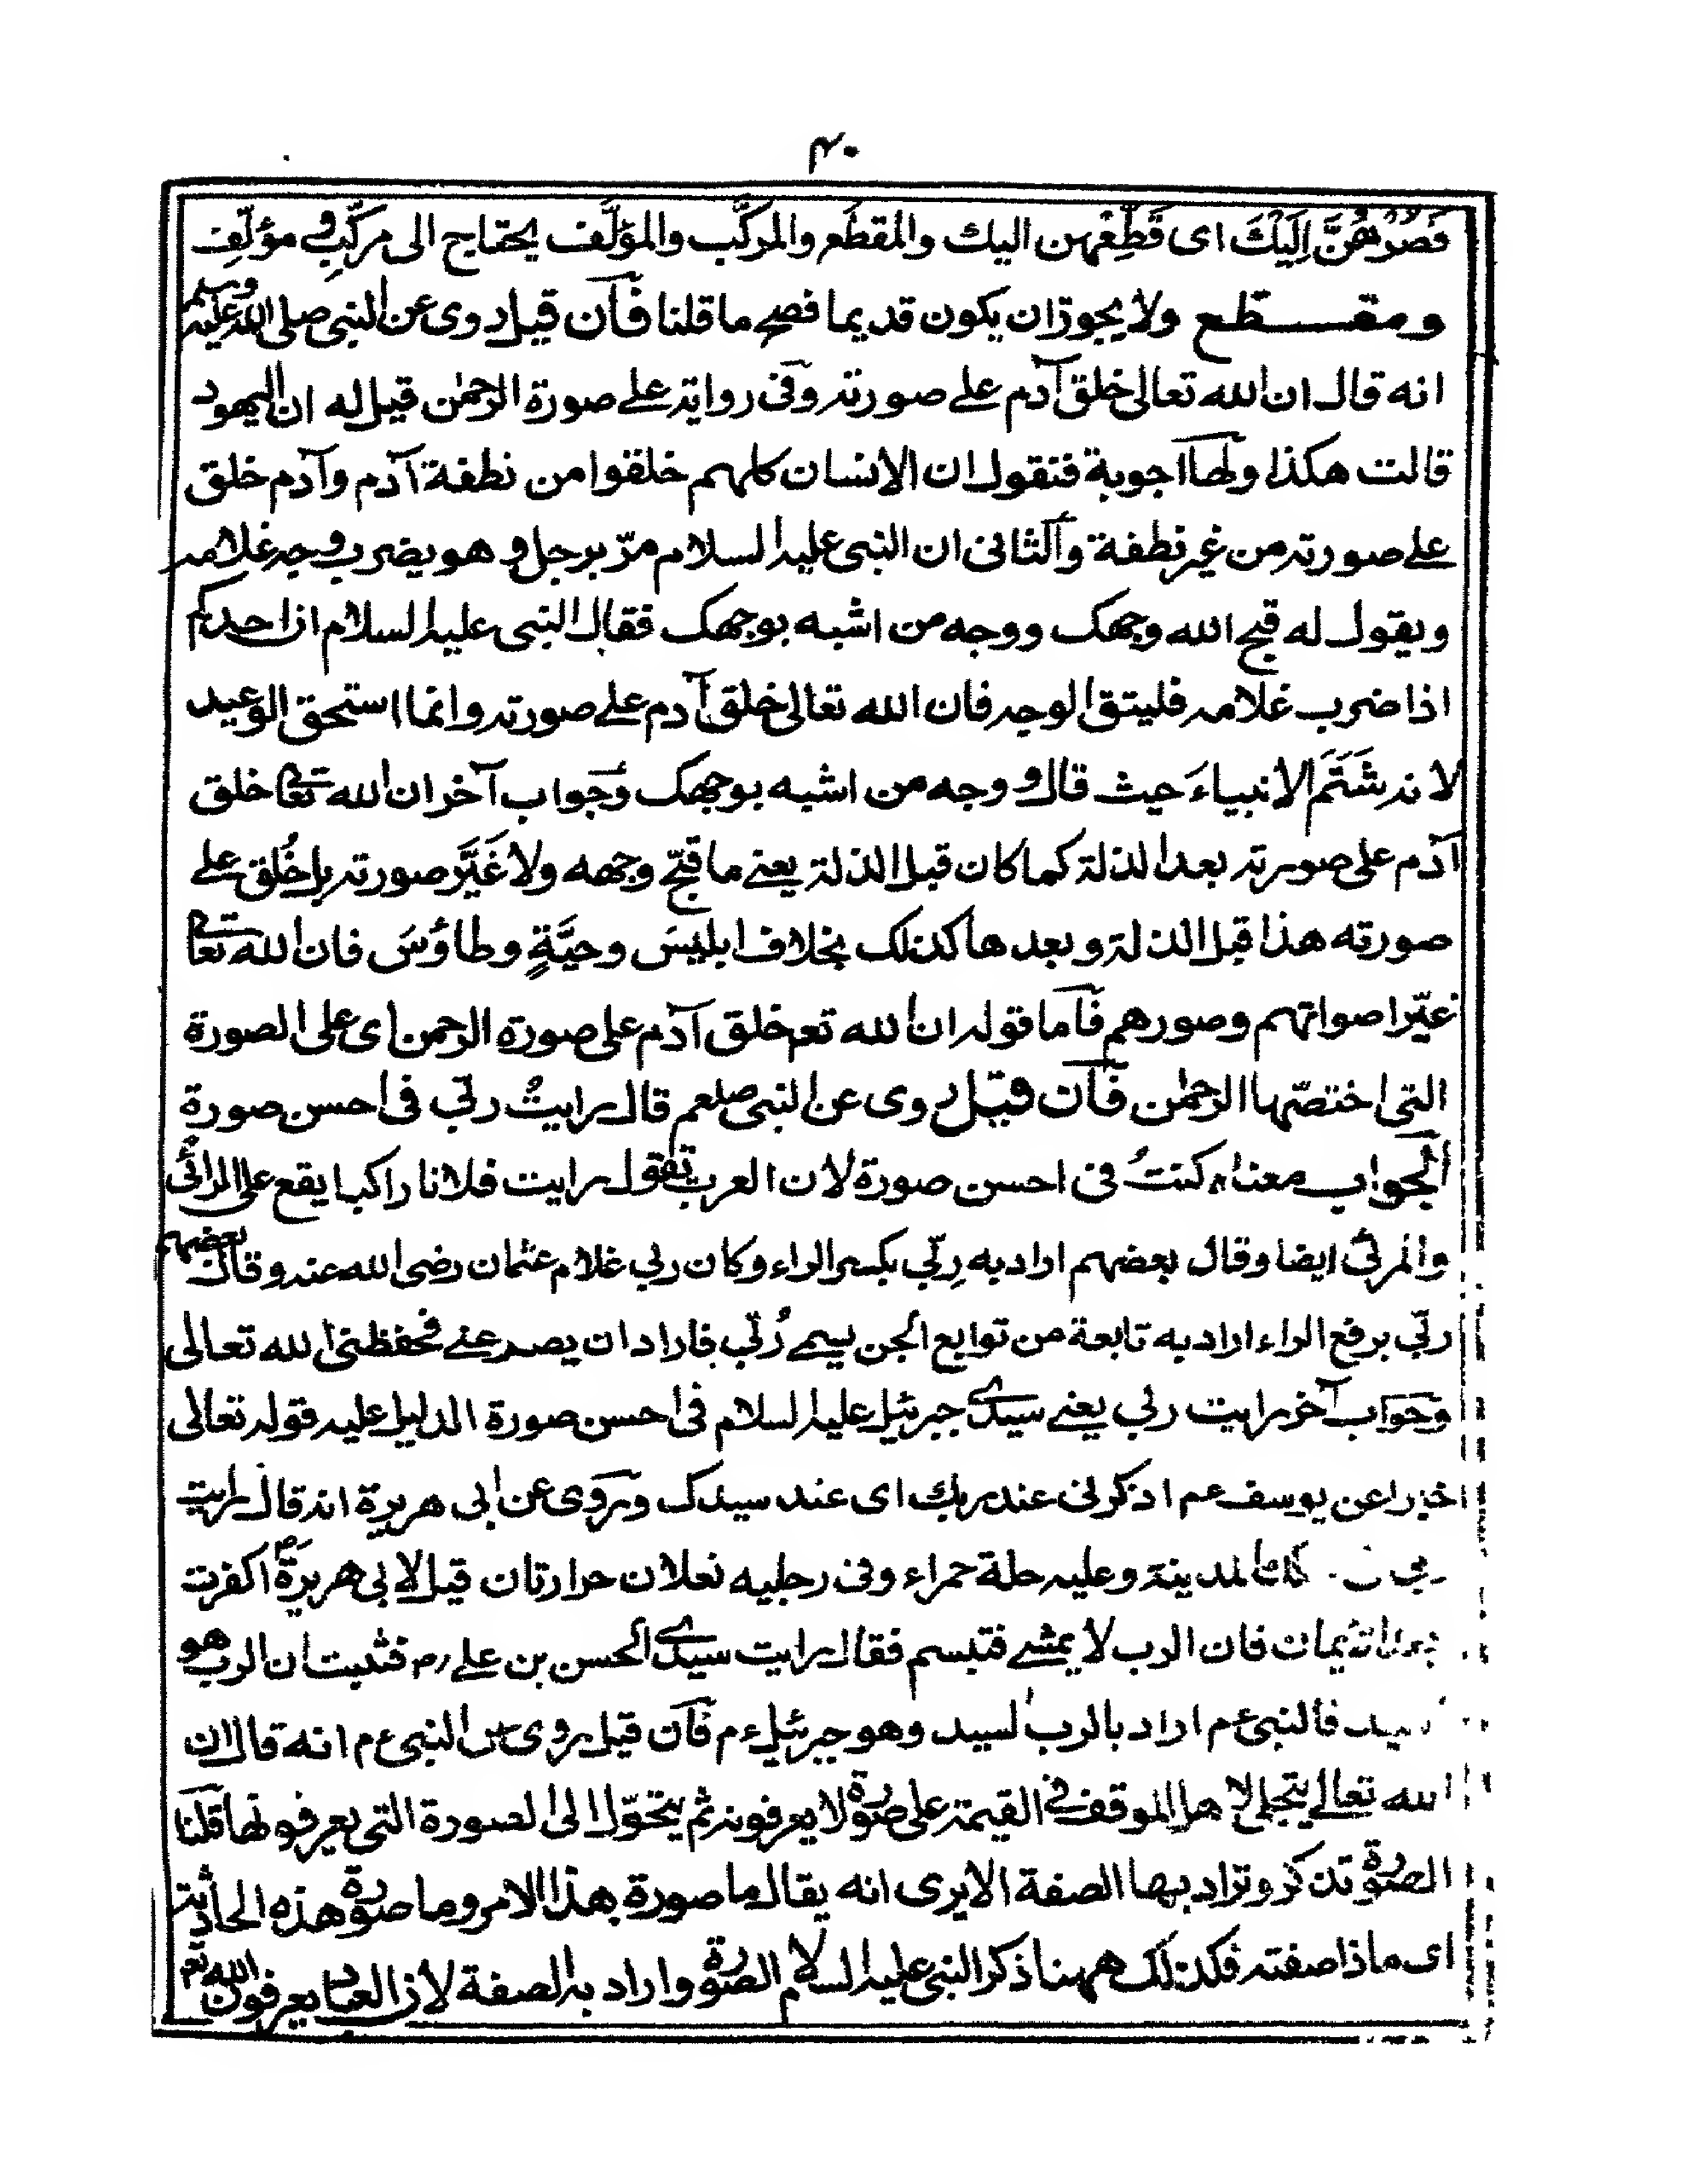 ۴۰
فَصُرْهُنَّ اِلَيْكَ اى قَطِّعْهن اليك والمُقطَّع والمركَّب والمؤلَّف يحتاج الى مركِّبٍ و مؤلِّفٍ
ومقـــطّع ولا يجوز ان يكون قديما فصح ما قلنا فآن قيل روى عن النبى صلى الله عليه وسلم
انه قال ان الله تعالى خلق آدم على صورته وفى رواية على صورة الرحمٰن قيل له ان اليهود
قالت هكذا ولها اجوبة فنقول ان الانسان كلهم خلقوا من نطفة آدم وآدم خلق
على صورته من غير نطفة وآلثانى ان النبى عليه السلام مرّ برجل و هو يضرب وجه غلامه
ويقول له قبح الله وجهك ووجه من اشبه بوجهك فقال النبى عليه السلام ان احدكم
اذا ضرب غلامه فليتق الوجه فان الله تعالى خلق آدم على صورته وانما استحق الوعيد
لانه شَتَمَ الانبياءَ حيث قال و وجه من اشبه بوجهك وجواب آخر ان الله تعا خلق
آدم على صورته بعد الذلة كما كان قبل الذلة يعنے ما قبّح وجهه ولا غَيَّرَ صورته بل خُلق على
صورته هذا قبل الذلة وبعدها كذلك بخلاف ابليسَ وحيَّةٍ وطاؤسَ فان الله تعا
غيّر اصواتهم وصورهم فآما قوله ان الله تعم خلق آدم على صورة الرحمن اى على الصورة
التى اختصّها الرحمٰن فآن قيل روى عن النبى صلعم قال رايتُ ربّى فى احسن صورة
آلجواب معناه كنتُ فى احسن صورة لان العرب تقول رايت فلانا راكبا يقع على الرائى
والمرئى ايضا وقال بعضهم اراد به رِبّى بكسر الراء وكان ربى غلام عثمان رضى الله عنه وقال بعضهم
ربّى برفع الراء اراد به تابعة من توابع الجن يسمے رُبّى فاراد ان يصد عنے فحفظنى الله تعالى
وجواب آخر رايت ربى يعنے سيدے جبرئيل عليه السلام فى احسن صورة الدليل عليه قوله تعالى
خبرا عن يوسف عم اذكرنى عند ربك اى عند سيدك وروى عن ابى هريرة انه قال رايت
ربى المدينة وعليه حلة حمراء وفى رجليه نعلان حرارتان قيل لابى هريرة اكفرت
فان الرب لا يمشے فتبسم فقال رايت سيدے الحسن بن على رم فثبت ان الرب هو
سيد فالنبى ءم اراد بالرب السيد وهو جبرئيل ءم فآن قيل روى عن النبى ءم انه قال ان
الله تعالے يتجلى لاهل الموقف فى القيمة على صورة لا يعرفونه ثم يتحوّل الى الصورة التى يعرفونها قلنا
الصورة تذكر وتراد بها الصفة الا يرى انه يقال ما صورة هذا الامر وما صورة هذه الحادثة
اى ماذا صفته فكذلك ههنا ذكر النبى عليه السلام الصورة واراد به الصفة لان العباد يعرفون الله تعم